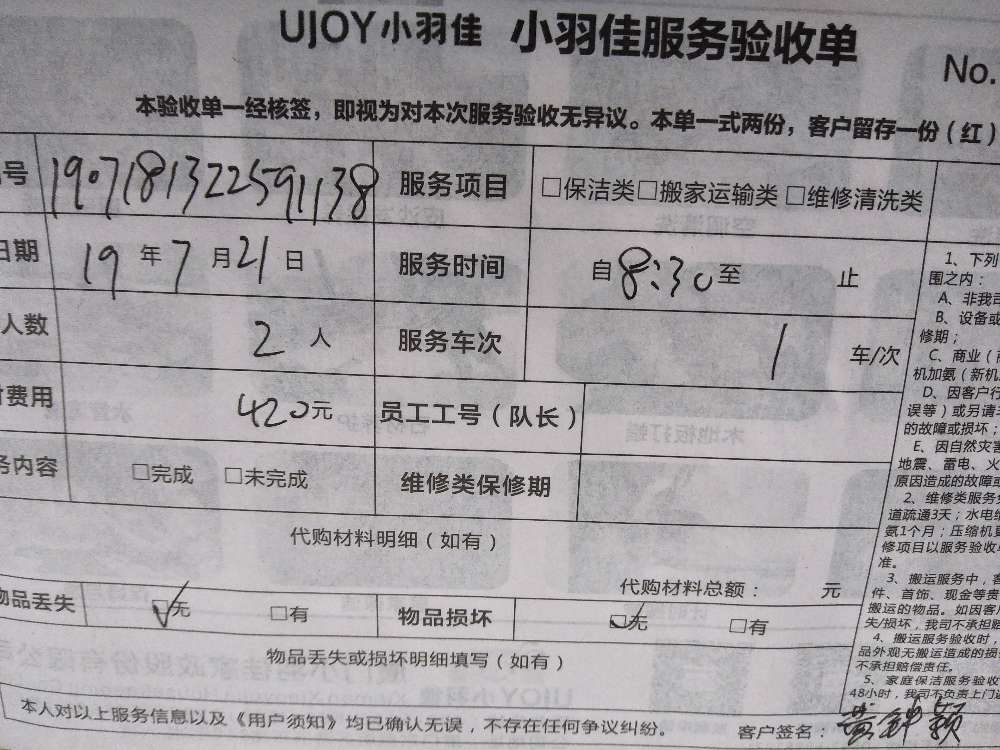 UJOY小羽佳 小羽佳服务验收单
No.
本验收单一经核签，即视为对本次服务验收无异议。本单一式两份，客户留存一份（红）
号 1907181322591138 服务项目 □保洁类□搬家运输类 □维修清洗类
日期 19 年 7 月 21 日 服务时间 自 8:30 至 止
人数 2 人 服务车次 1 车/次
费用 420元 员工工号（队长）
务内容 □完成 □未完成 维修类保修期
代购材料明细（如有）
代购材料总额： 元
物品丢失 ☑无 □有 物品损坏 ☑无 □有
物品丢失或损坏明细填写（如有）
本人对以上服务信息以及《用户须知》均已确认无误，不存在任何争议纠纷。 客户签名：黄钟颖
1、下列
围之内：
A、非我司
B、设备或
修期；
C、商业（商
机加氨（新机
D、因客户行
误等）或另请
的故障或损坏；
E、因自然灾害
地震、雷电、火
原因造成的故障或
2、维修类服务
道疏通3天；水电维
氨1个月；压缩机更
修项目以服务验收单
准。
3、搬运服务中，客
件、首饰、现金等贵
搬运的物品。如因客户
失/损坏，我司不承担赔
4、搬运服务验收时，
品外观无搬运造成的损
不承担赔偿责任。
5、家庭保洁服务验收
48小时，我司不负责上门返